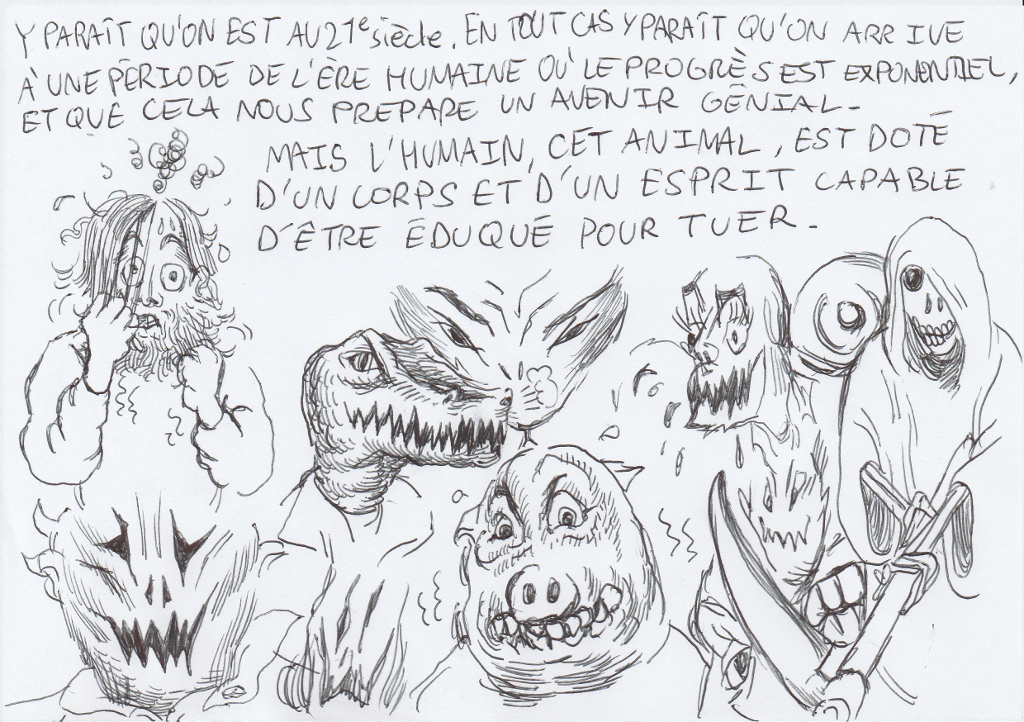 Y PARAÎT QU'ON EST AU 21e siècle. EN TOUT CAS Y PARAÎT QU'ON ARRIVE
À UNE PÉRIODE DE L'ÈRE HUMAINE OÙ LE PROGRÈS EST EXPONENTIEL,
ET QUE CELA NOUS PREPARE UN AVENIR GÉNIAL.
MAIS L'HUMAIN, CET ANIMAL, EST DOTÉ
D'UN CORPS ET D'UN ESPRIT CAPABLE
D'ÊTRE ÉDUQUÉ POUR TUER.